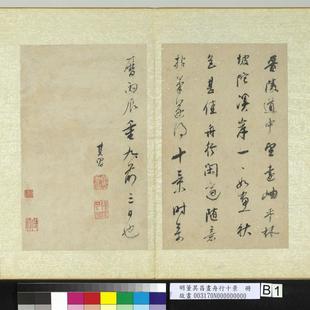 陵道中望遠岫平林
坡陀溪岸一一如畫秋
色甚佳舟行閒適隨意
拈筆遂得十景時萬
曆丙辰重九前三日也
其昌
明董其昌畫舟行十景 冊
故畫 003170N000000000
B 1